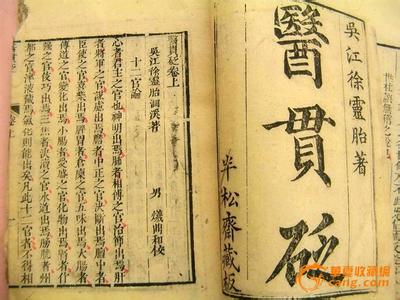 吳江徐靈胎著
醫貫砭
半松齋藏板
醫貫砭卷上
吳江徐靈胎洄溪著 男 爔鼎和校
十二官論
心者君主之官也神明出焉肺者相傅之官治節出焉肝
者將軍之官謀慮出焉膽者中正之官決斷出焉膻中者
臣使之官喜樂出焉脾胃者倉廩之官五味出焉大腸者
傳道之官變化出焉小腸者受盛之官化物出焉腎者作
強之官伎巧出焉三焦者決瀆之官水道出焉膀胱者州
都之官津液藏焉氣化則能出矣凡此十二官者不得相
华夏收藏网
cang.com